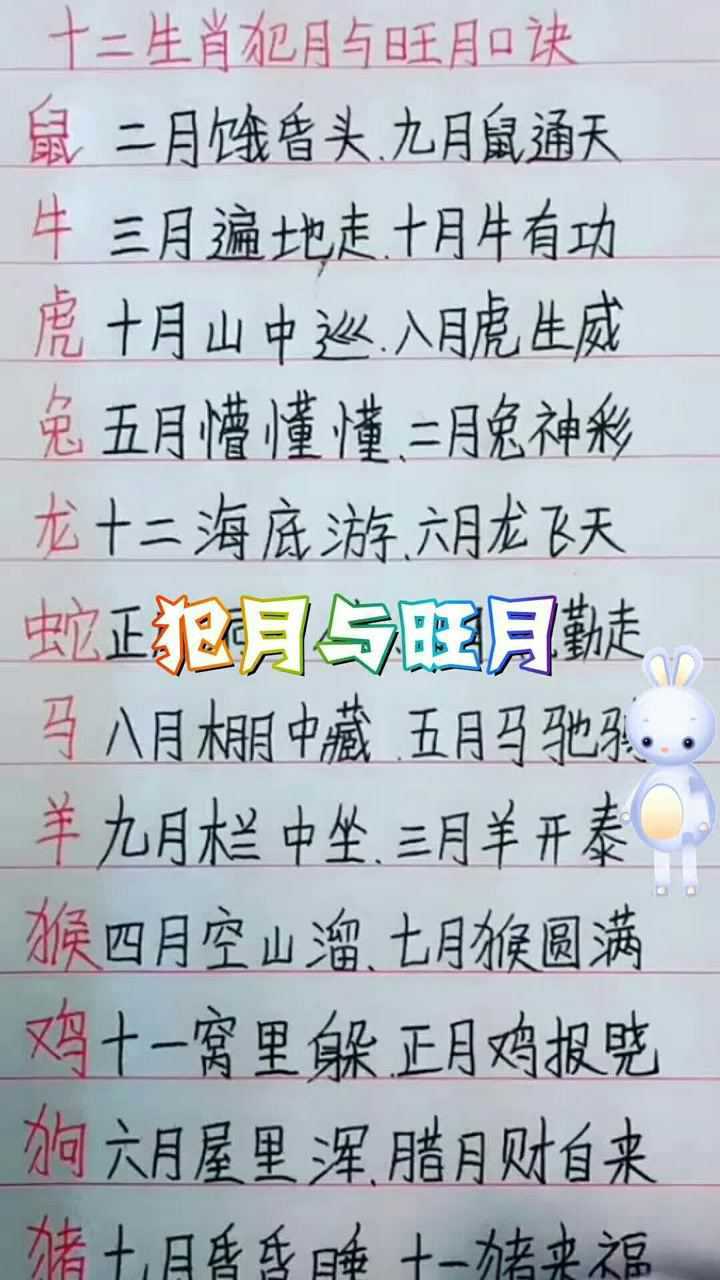 十二生肖犯月与旺月口诀
鼠 二月饿昏头、九月鼠通天
牛 三月遍地走、十月牛有功
虎 十月山中巡、八月虎生威
兔 五月懵懂懂、二月兔神彩
龙 十二海底游、六月龙飞天
蛇 正 勤走
犯月与旺月
马 八月棚中藏、五月马驰
羊 九月栏中坐、三月羊开泰
猴 四月空山溜、七月猴圆满
鸡 十一窝里躲、正月鸡报晓
狗 六月屋里浑、腊月财自来
猪 七月昏昏睡 十一猪来福